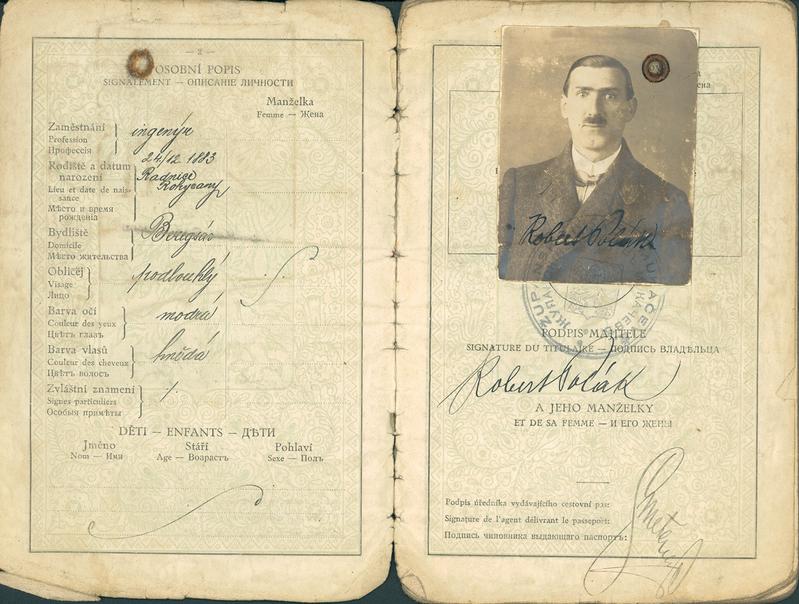 — 2 —
OSOBNÍ POPIS
SIGNALEMENT — ОПИСАНІЕ ЛИЧНОСТИ
Manželka
Femme — Жена
Zaměstnání
Profession
Профессія
ingenýr
Rodiště a datum
narození
Lieu et date de nais-
sance
Мѣсто и время
рожденія
24/12 1883
Radnice
Rokycany
Bydliště
Domicile
Мѣсто жительства
Beregsás
Obličej
Visage
Лицо
podlouhlý
Barva očí
Couleur des yeux
Цвѣтъ глазъ
modrá
Barva vlasů
Couleur des cheveux
Цвѣтъ волосъ
hnědá
Zvláštní znamení
Signes particuliers
Особыя примѣты
DĚTI — ENFANTS — ДѢТИ
Jméno Stáří Pohlaví
Nom — Имя Age — Возрастъ Sexe — Полъ
Robert Polák
PODPIS MAJITELE
SIGNATURE DU TITULAIRE — ПОДПИСЬ ВЛАДѢЛЬЦА
Robert Polák
A JEHO MANŽELKY
ET DE SA FEMME — И ЕГО ЖЕНЫ
Podpis úředníka vydávajícího cestovní pas:
Signature de l'agent délivrant le passeport:
Подпись чиновника выдающаго паспортъ: